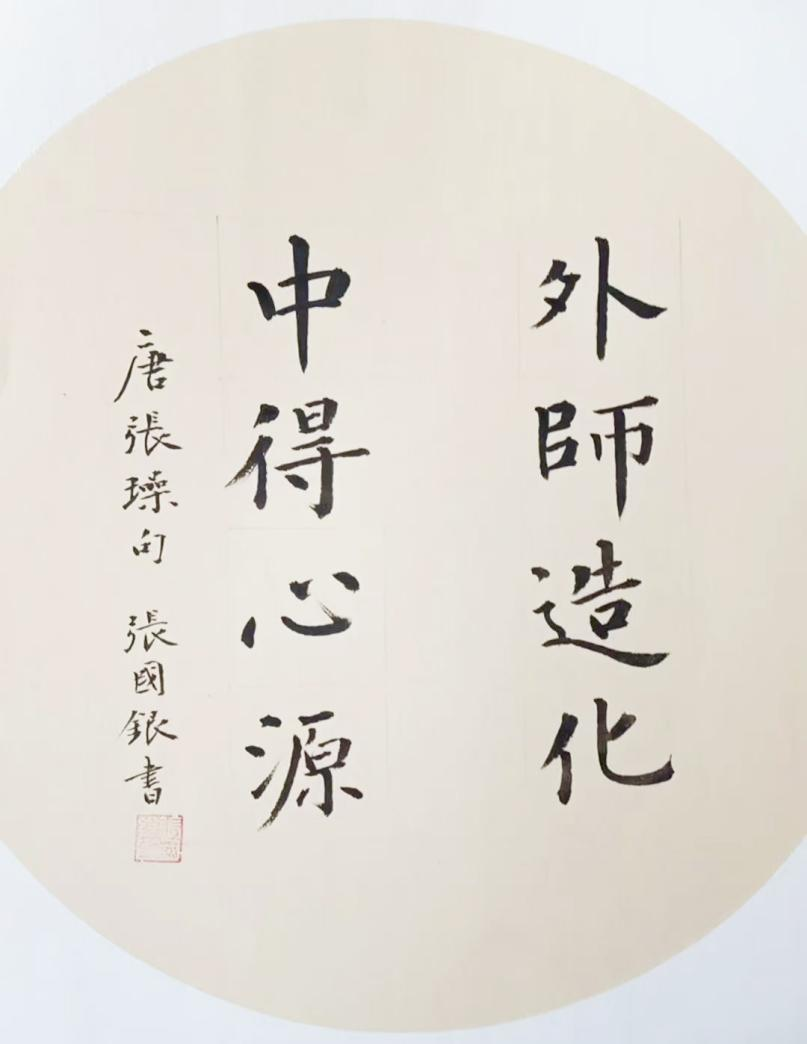 外師造化
中得心源
唐張璪句 張國銀書